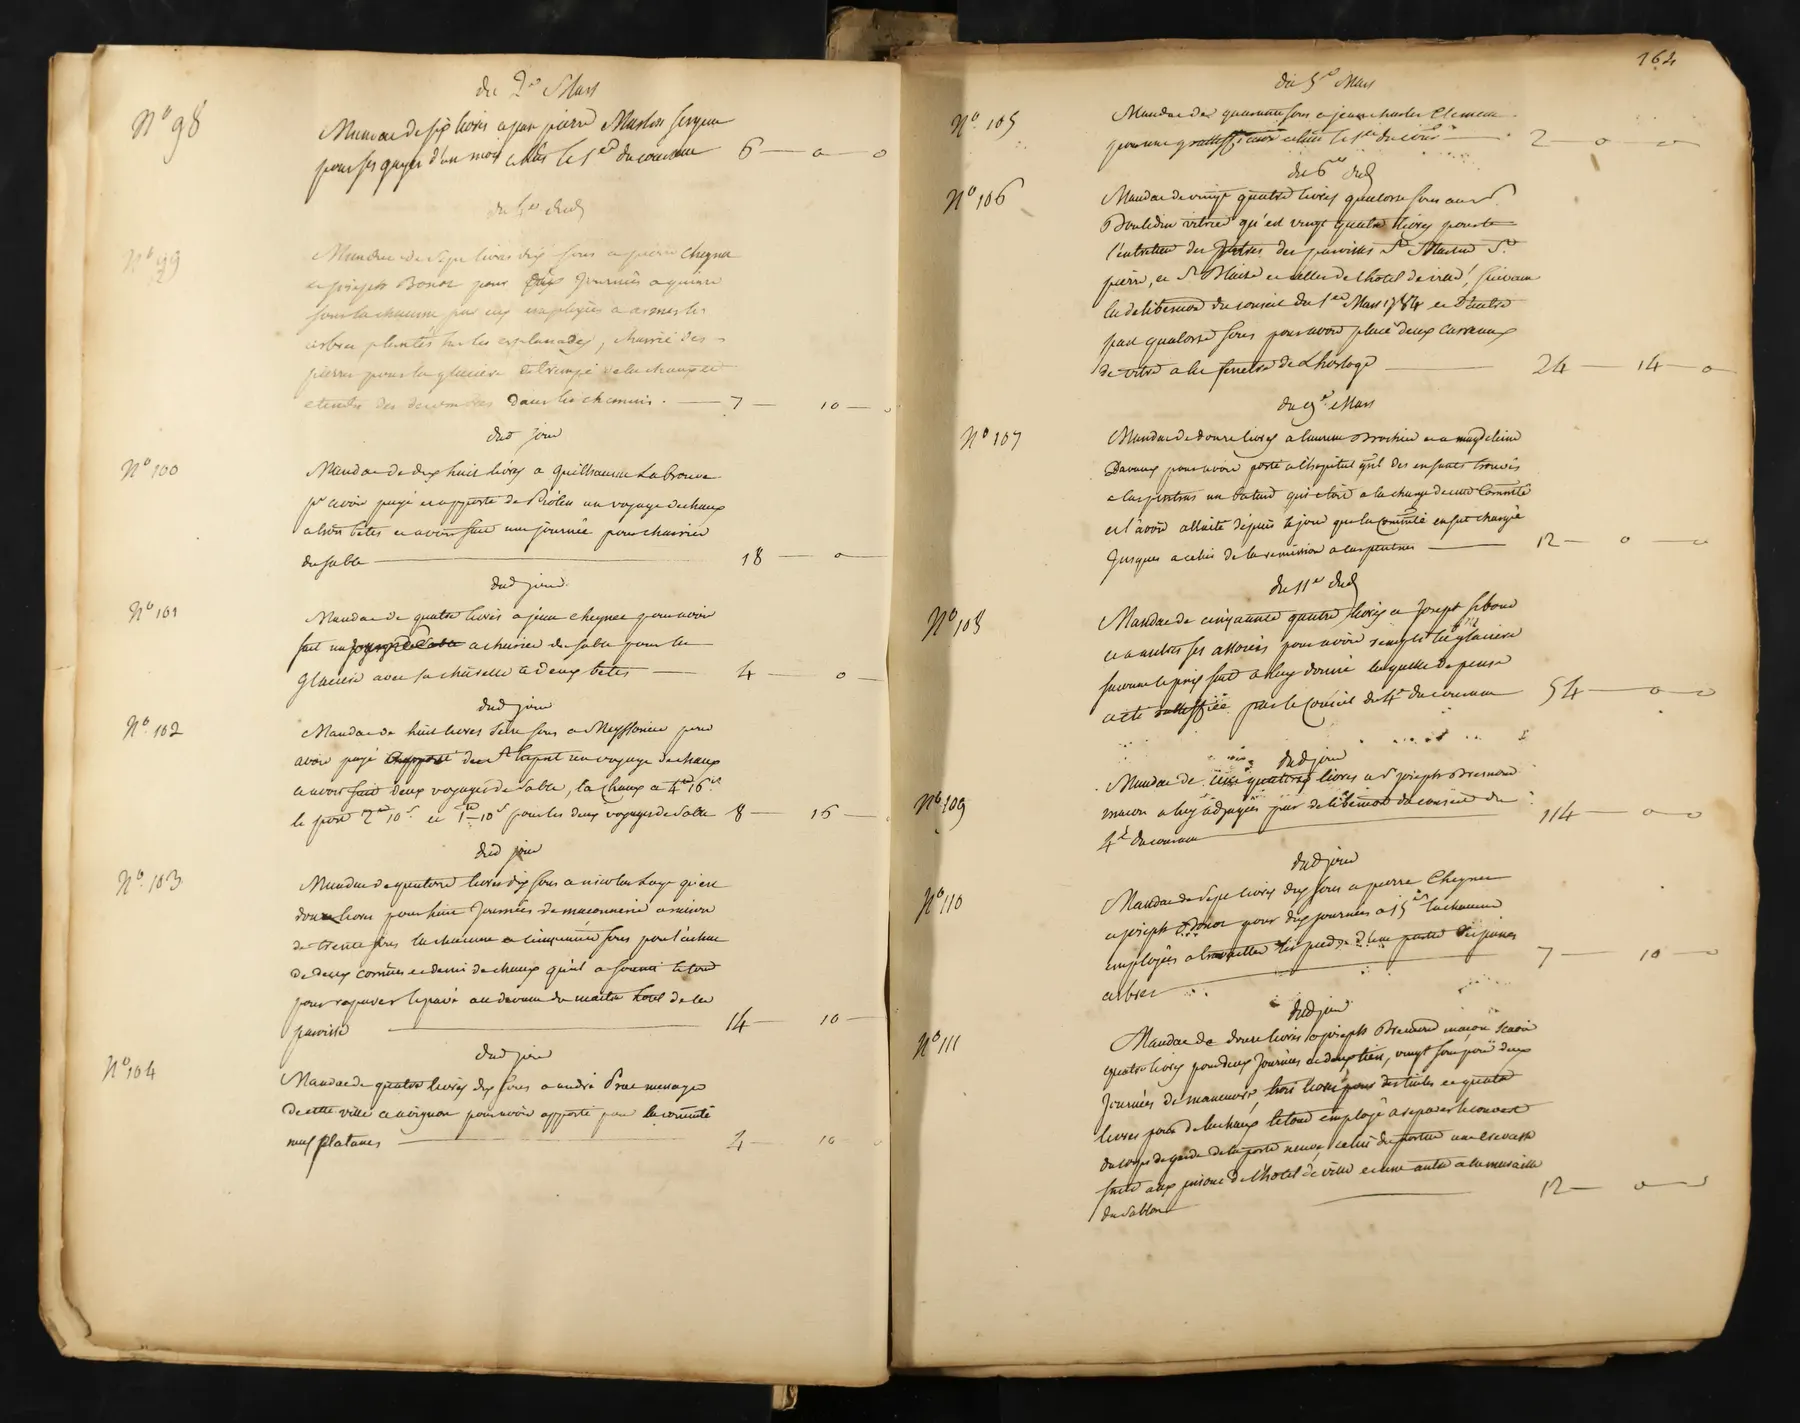 du 2e Mars
N° 98
Mandat de six livres a jean pierre Maslon sergent
pour ses gages d'un mois echus le 1er du courant 6 — o — o
N° 99
Mandat de sept livres dix sous a pierre Cheynet
et joseph Bonot pour dix journées a quinze
sous la chacune par eux employées a
arbres plantés sur les esplanades, charrié des
pierres pour la glaciere et la chaux et
des decombres dans les chemins. — 7 — 10 — o
dud jour
N° 100
Mandat de dix huit livres a Guilhaume Labrouve
pr avoir payé et apporté de Piolen un voyage de chaux
a trois bêtes et avoir fait une journée pour charrier
du sable — 18 — o —
dud jour
N° 101
Mandat de quatre livres a jean Cheynet pour avoir
fait un a charrier du sable pour la
Glaciere avec sa charette a deux betes — 4 — o —
dud jour
N° 102
Mandat de huit livres seize sous a Meyssonier pour
avoir payé apporté de un voyage de chaux
et avoir fait deux voyages de sable, la chaux a 4 16
le port 2 10s et 1 10s pour les deux voyages de sable 8 — 16 —
dud jour
N° 103
Mandat de quatorze livres dix sous a nicolas qu'est
douze livres pour huit journées de maconnerie a raison
de trente sous la chacune et cinquante sous pour l'achat
de deux cornues et demi de chaux qu'il a fourni le tout
pour repaver le pavé au devant du maitre hotel de la
paroisse — 14 — 10 —
dud jour
N° 104
Mandat de quatre livres dix sous a andré Prat menager
de cette ville a avignon pour avoir apporté pour la comuté
neuf platanes — 4 — 10 — o
164
du 5e Mars
N° 105
Mandat de quarante sous a jean charles Clement
pour une gratiffication echue le 1er du cour — 2 — o — o
du 6e dud
N° 106
Mandat de vingt quatre livres quatorse sous au Sr
vitrier qu'est vingt quatre livres pour
l'entretien des vitres des paroisses St Martin St
pierre, et St Blaise et celles de l'hotel de ville, suivant
la deliberation du conseil du 1er Mars 1784 et d'autre
part quatorse sous pour avoir placé deux carreaux
de vitre a la fenetre de L'horloge — 24 — 14 — o
du 9e Mars
N° 107
Mandat de douze livres a laurent Brochier et a magdeleine
Davaux pour avoir porté a l'hopital gñl des enfants trouvés
a Carpentras un batard qui etoit a la charge de cette Commuté
et l'avoir allaité depuis le jour que la Commuté en fut chargée
jusques a celui de la remission a Carpentras — 12 — o — o
du 11e dud
N° 108
Mandat de cinquante quatre livres a Joseph
et a autres ses associés pour avoir rempli la glaciere
suivant le prix fait a luy donné laquelle depense
a eté rattiffiée par le Conseil du 4e du courant 54 — o — o
dud jour
N° 109
Mandat de cent quatorze livres a Sr joseph Bremond
macon a luy adjugées par deliberation du conseil du
4e du courant — 114 — o — o
dud jour
N° 110
Mandat de sept livres dix sous a pierre Cheynet
a joseph Bonot pour dix journées a 15s la chacune
employées a travailler les pieds d'une partie des jeunes
arbres 7 — 10 — o
dud jour
N° 111
Mandat de douze livres a joseph Bremond maçon scavoir
quatre livres pour deux journées et deux tiers, vingt sous pour deux
journées de manœuvre, trois livres pour des tuiles et quatre
livres pour de la chaux le tout employé a reparer le couvert
du corps de garde de la porte neuve, celui du portier une crevasse
faite aux prisons de l'hotel de ville et une autre a la muraille
du Sablon — 12 — o — o